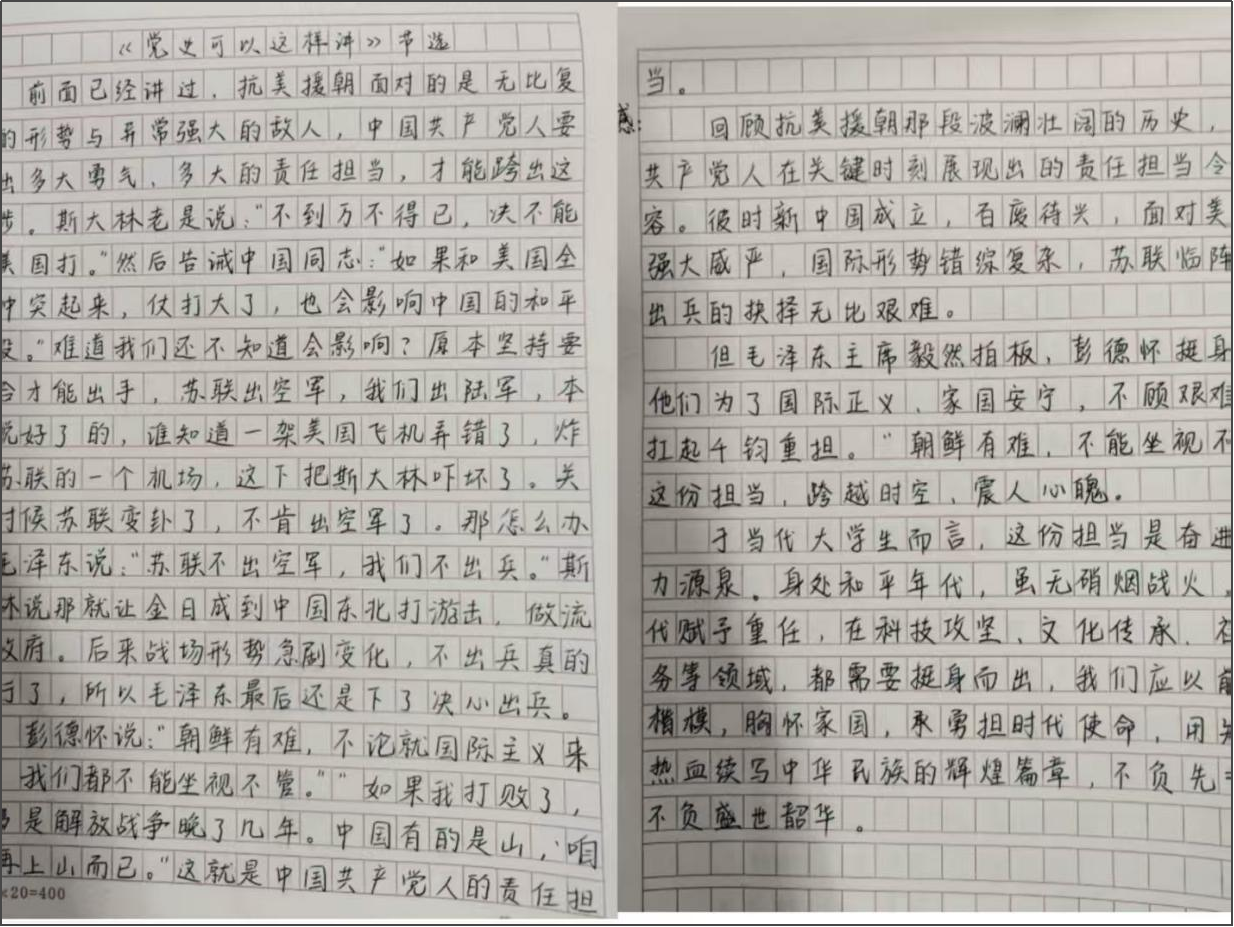 《党史可以这样讲》节选
前面已经讲过，抗美援朝面对的是无比复
的形势与异常强大的敌人，中国共产党人要
出多大勇气、多大的责任担当，才能跨出这
步。斯大林老是说：“不到万不得已，决不能
美国打。”然后告诫中国同志：“如果和美国全
冲突起来，仗打大了，也会影响中国的和平
设。”难道我们还不知道会影响？原本坚持要
合才能出手，苏联出空军，我们出陆军，本
说好了的，谁知道一架美国飞机弄错了，炸
苏联的一个机场，这下把斯大林吓坏了。关
时候苏联变卦了，不肯出空军了。那怎么办
毛泽东说：“苏联不出空军，我们不出兵。”斯
林说那就让金日成到中国东北打游击，做流
政府。后来战场形势急剧变化，不出兵真的
行了，所以毛泽东最后还是下了决心出兵。
彭德怀说：“朝鲜有难，不论就国际主义来
我们都不能坐视不管。”“如果我打败了，
多是解放战争晚了几年。中国有的是山，咱
再上山而已。”这就是中国共产党人的责任担
×20=400
当。
感：
回顾抗美援朝那段波澜壮阔的历史，
共产党人在关键时刻展现出的责任担当令
容。彼时新中国成立，百废待兴，面对美
强大威严，国际形势错综复杂，苏联临阵
出兵的抉择无比艰难。
但毛泽东主席毅然拍板、彭德怀挺身
他们为了国际正义、家国安宁，不顾艰难
扛起千钧重担。“朝鲜有难，不能坐视不
这份担当，跨越时空，震人心魄。
于当代大学生而言，这份担当是奋进
力源泉。身处和平年代，虽无硝烟战火，
代赋予重任，在科技攻坚、文化传承、社
务等领域，都需要挺身而出，我们应以前
楷模，胸怀家国，承勇担时代使命，用
热血续写中华民族的辉煌篇章，不负先
不负盛世韶华。